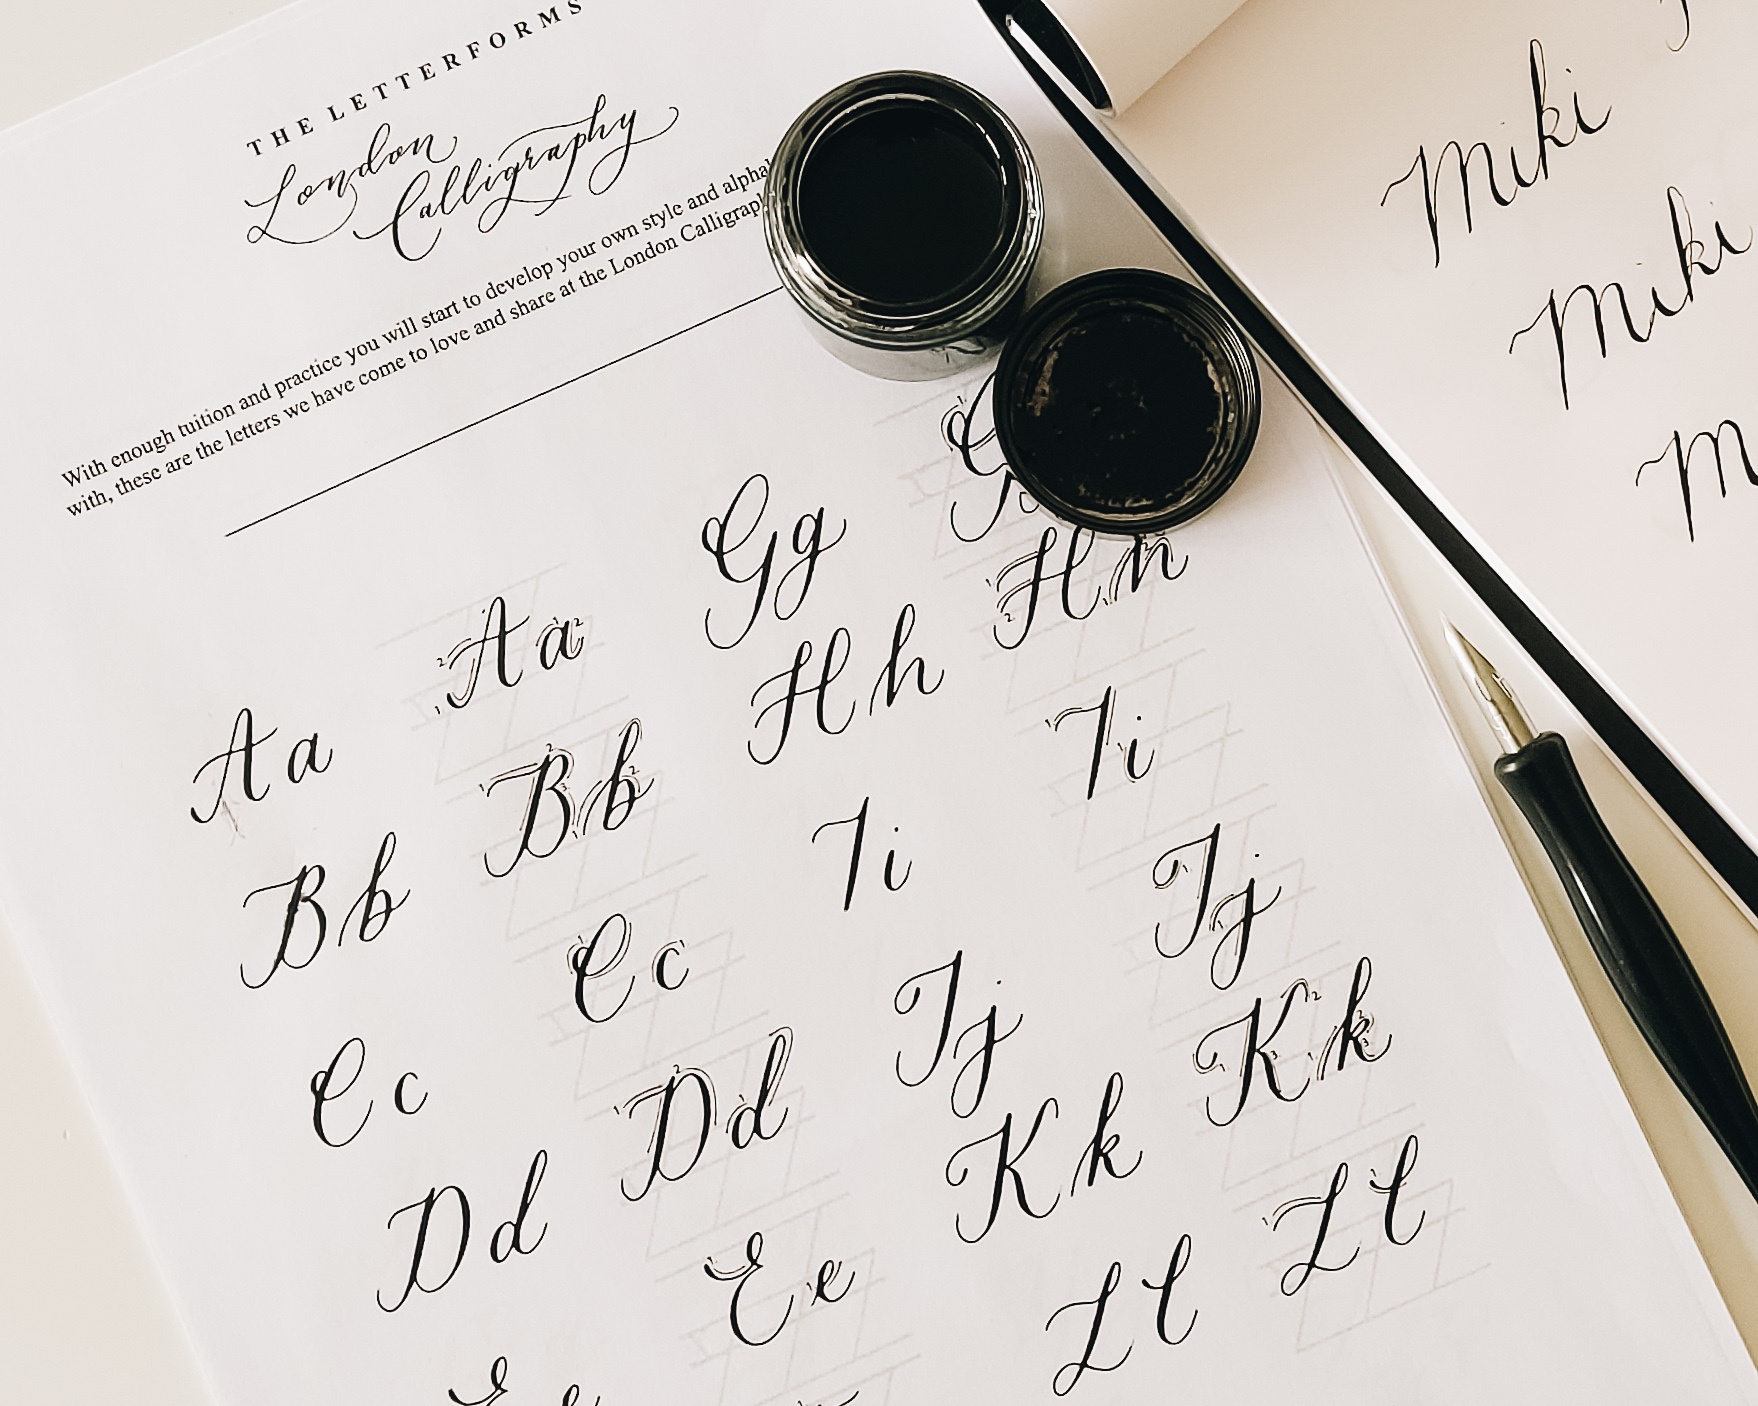 THE LETTERFORMS
London
Calligraphy
With enough tuition and practice you will start to develop your own style and
with, these are the letters we have come to love and share at the London
Aa
Aa
Bb
Bb
Cc
Cc
Dd
Dd
Ee
Gg
Hh
Hh
Ii
Ii
Jj
Jj
Kk
Kk
Ll
Ll
Miki
Miki
M